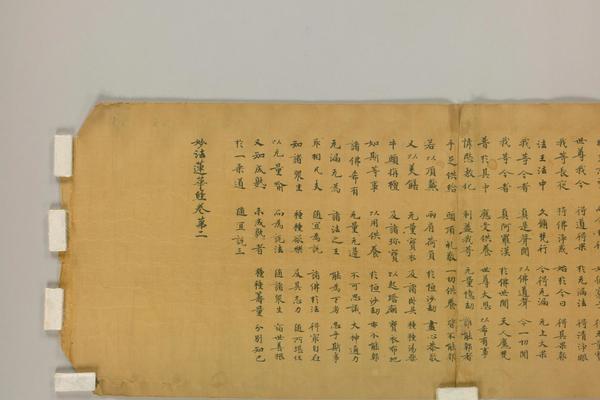 世尊我今 得道得果 於无漏法 得清淨眼
我等長夜 持佛淨戒 始於今日 得其果報
法王法中 久脩梵行 今得无漏 无上大果
我等今者 真是聲聞 以佛道聲 令一切聞
我等今者 真阿羅漢 於諸世間 天人魔梵
普於其中 應受供養 世尊大恩 以希有事
憐愍教化 利益我等 无量億劫 誰能報者
手足供給 頭頂礼敬 一切供養 皆不能報
若以頂戴 兩肩荷負 於恒沙劫 盡心恭敬
又以美饍 无量寶衣 及諸臥具 種種湯藥
牛頭栴檀 及諸珍寶 以起塔廟 寶衣布地
如斯等事 以用供養 於恒沙劫 亦不能報
諸佛希有 无量无邊 不可思議 大神通力
无漏无為 諸法之王 能為下劣 忍于斯事
取相凡夫 隨宜為說 諸佛於法 得最自在
知諸衆生 種種欲樂 及其志力 隨所堪任
以无量喻 而為說法 隨諸衆生 宿世善根
又知成熟 未成熟者 種種籌量 分別知已
於一乘道 隨宜說三
妙法蓮華經卷第二